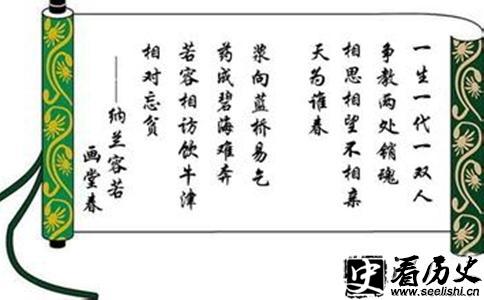 一生一代一双人
争教两处销魂
相思相望不相亲
天为谁春
浆向蓝桥易乞
药成碧海难奔
若容相访饮牛津
相对忘贫
——纳兰容若
画堂春
史 看历史
www.seelishi.cn